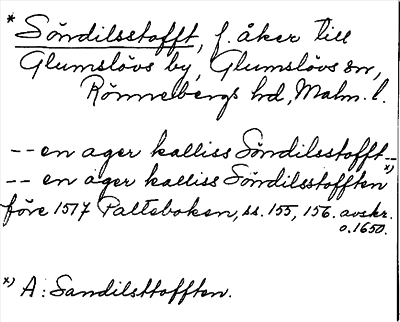 * Söndilsstofft, f. åker till
Glumslövs by, Glumslövs sn,
Rönnebergs hd, Malm. l.
-- en ager kalliss Söndilsstofft --
-- en ager kalliss Söndilsstofften x)
före 1517 Paltsboken, ss. 155, 156. avskr.
o. 1650.
x) A: Sandilsttofften.